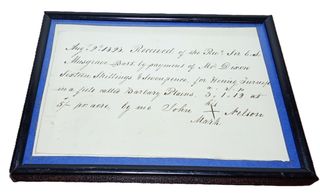 Augt 9th 1822. Received of the Revd Sir C. J.
Musgrave Bart by payment of Mr Dixon
Sixteen Shillings & twopence for Hoeing Turnips
in a field called Barbary Plains. 3, 1, 12 at
5/- pr acre. by me John X Nelson
Mark